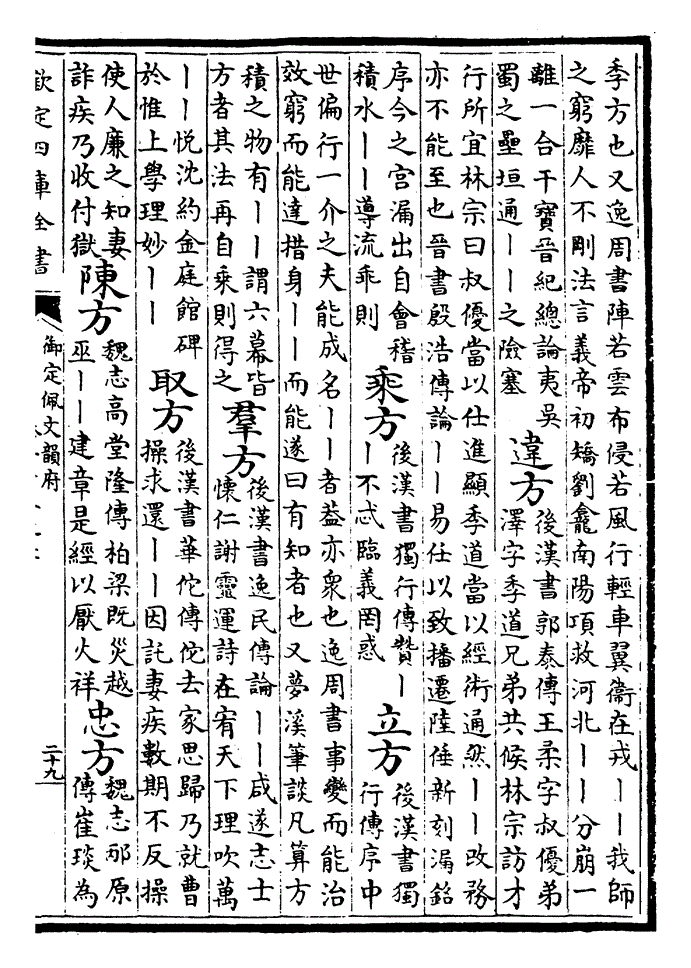 季方也又逸周書陣若雲布侵若風行輕車翼衞在戎丨丨我師
之窮靡人不剛法言義帝初矯劉龕南陽項救河北丨丨分崩一
離一合干寶晉紀總論夷吳
蜀之壘垣通丨丨之險塞
違方
後漢書郭泰傳王柔字叔優弟
澤字季道兄弟共候林宗訪才
行所宜林宗曰叔優當以仕進顯季道當以經術通然丨丨改務
亦不能至也晉書殷浩傳論丨丨易仕以致播遷陸倕新刻漏銘
序今之宫漏出自會稽
積水丨丨導流乖則
乘方
後漢書獨行傳贊丨
丨不忒臨義罔惑
立方
後漢書獨
行傳序中
世偏行一介之夫能成名丨丨者葢亦衆也逸周書事變而能治
效窮而能達措身丨丨而能遂曰有知者也又夢溪筆談凡算方
積之物有丨丨謂六幕皆
方者其法再自乘則得之
羣方
後漢書逸民傳論丨丨咸遂志士
懷仁謝靈運詩在宥天下理吹萬
丨丨悦沈約金庭館碑
於惟上學理妙丨丨
取方
後漢書華佗傳佗去家思歸乃就曹
操求還丨丨因託妻疾數期不反操
使人廉之知妻
詐疾乃收付獄
陳方
魏志高堂隆傳柏梁既災越
巫丨丨建章是經以厭火祥
忠方
魏志邴原
傳崔琰為
欽定四庫全書
御定佩文韻府
二十九